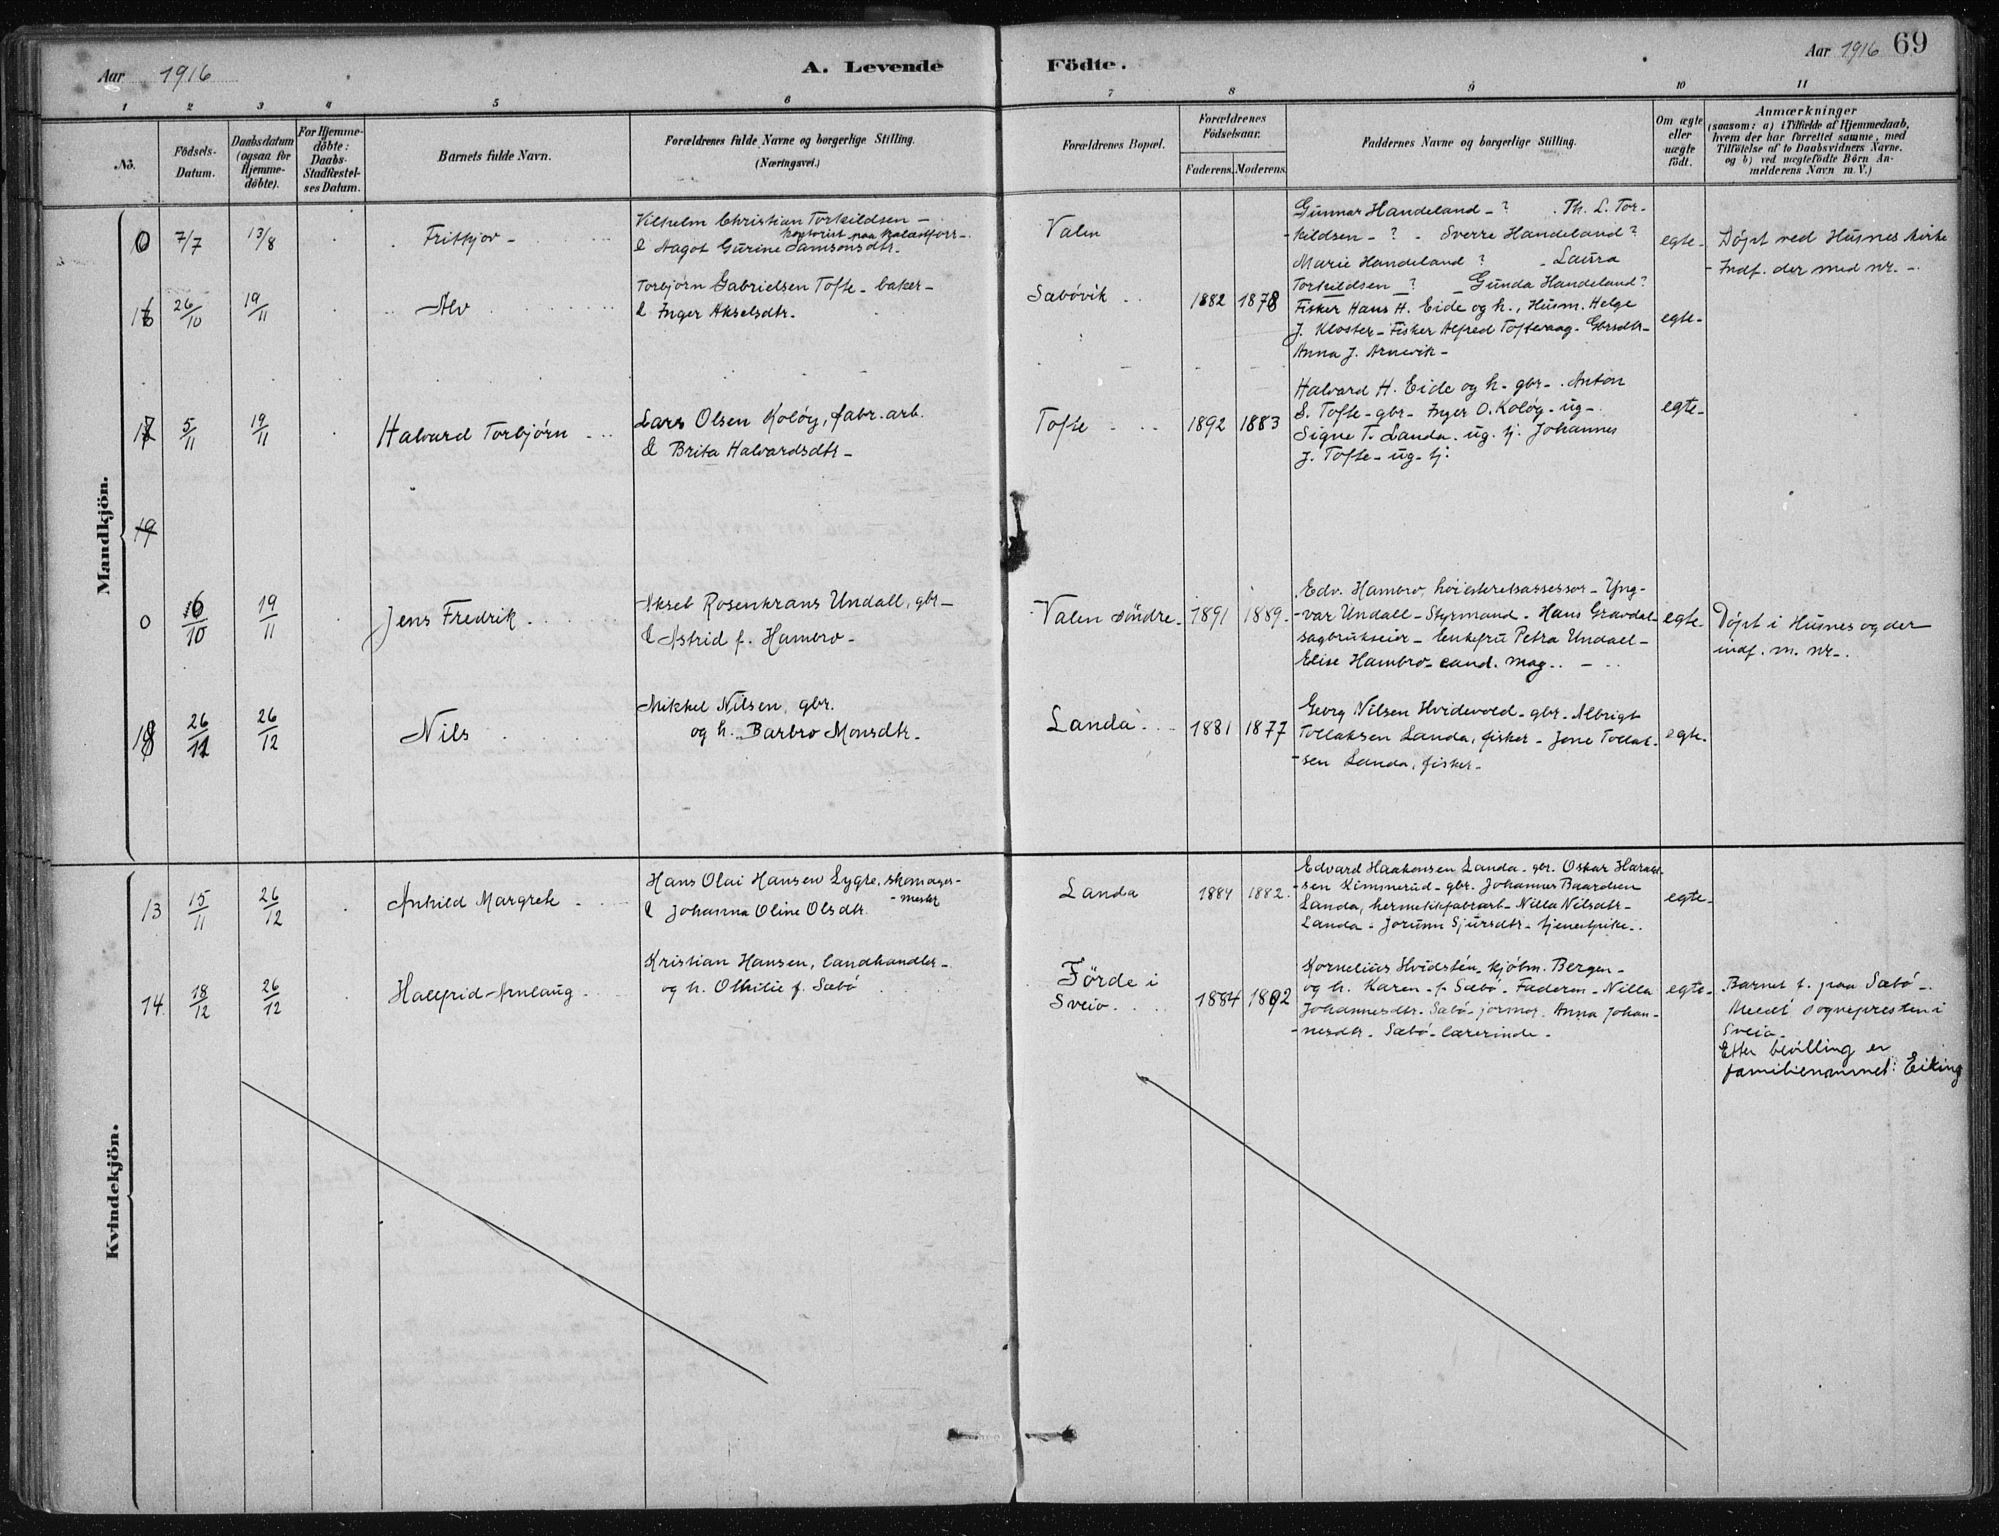 Aar 1916
A. Levende Födte.
Aar 1916 69
1 2 3 4 5 6 7 8 9 10 11
No.
Födsels-Datum.
Daabsdatum (ogsaa for Hjemmedöbte).
For Hjemmedöbte: Daabs-Stadfæstelses Datum.
Barnets fulde Navn.
Forældrenes fulde Navne og borgerlige Stilling.
(Næringsvei.)
Forældrenes Bopæl.
Forældrenes Födselsaar.
Faderens. Moderens.
Faddernes Navne og borgerlige Stilling.
Om ægte eller uægte födt.
Anmærkninger
(saasom: a) i Tilfælde af Hjemmedaab,
hvem der har forrettet samme, med
Tilföielse af to Daabsvidners Navne.
og b) ved uægtefödte Börn An-
melderens Navn m. V.)
Mandkjön.
0 7/7 13/8 Fritkjov -
Vilhelm Christian Torkildsen -
kontorist paa
& Aagot Gurine Samsonsdtr.
Valen
Gunnar Handeland - ? Th. L. Tor-
kildsen - ? - Sverre Handeland ?
Marie Handeland ? - Laura
Torkildsen ? - Gunda Handeland ?
egte-
Døpt ved Husnes kirke
- Indf. der med nr. -
16 26/10 19/11 Alv
Torbjørn Gabrielsen Tofte - baker -
& Inger Akselsdtr.
Sæbövik
1882 1878
Fisker Hans H. Eide og h., Husm. Helge
J. Kloster - Fisker Alfred Toftevaag - Gbrsdtr-
Anna J. Arnevik -
egte-
17 5/11 19/11 Halvard Torbjørn
Lars Olsen Koløy, fabr. arb.
& Brita Halvardsdtr -
Tofte
1892 1883
Halvard H. Eide og h - gbr - Anton
S. Tofte - gbr - Inger O. Koløy - ug -
Signe T. Landa - ug. tj. Johannes
J. Tofte - ug - tj.
egte-
19
0 16/10 19/11 Jens Fredrik
Aksel Rosenkrans Undall, gbr -
& Astrid f. Hambro -
Valen söndre
1891 1889
Edv. Hambro, höiesteretsassessor - Yng-
-var Undall - Styrmand - Hans Gravdal -
sagbrukseier - Enkefru Petra Undall -
Elise Hambro - cand. mag. -
egte-
Døpt i Husnes og der
indf. m. nr -
18 26/11 26/12 Nils
Mikkel Nilsen, gbr.
og h. Barbro Monsdtr -
Landa
1881 1877
Georg Nilsen Hvidevold - gbr - Albrigt
Tollaksen Landa, fisker - Jone Tollak-
-sen Landa, fisker -
egte-
Kvindekjön.
13 15/11 26/12 Anhild Margrete
Hans Olai Hansen Lygre, skomager-
-mester
& Johanna Oline Olsdtr.
Landa
1884 1882
Edvard Haakonsen Landa - gbr. Oskar Harald-
-sen Kimmerud - gbr. Johannes Baardsen
Landa, hermetikfabrarb - Nilla Nilsdtr -
Landa - Jorunn Sjursdtr - tjenestpike -
egte-
14 18/12 26/12 Hallfrid Arnlaug
Kristian Hansen, landhandler -
og h. Othilie f. Sæbö
Förde i
Sveio
1884 1892
Kornelius Hvidstén - kjöbm. Bergen -
og h. Karen - f. Sæbö - Faderen - Nilla
Johannesdtr. Sæbö - jormor. Anna Johan-
-nesdtr - Sæbö - lærerinde -
egte-
Barnet f. paa Sæbö -
Meldt sognepresten i
Sveio -
Etter bevilling er
familienavnet: Eiking